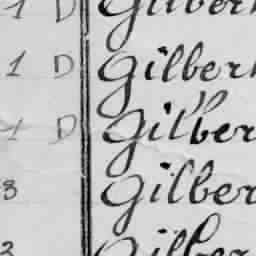 1 D Gilbert
1 D Gilbert
1 D Gilber
3 Gilber
3 Gilber